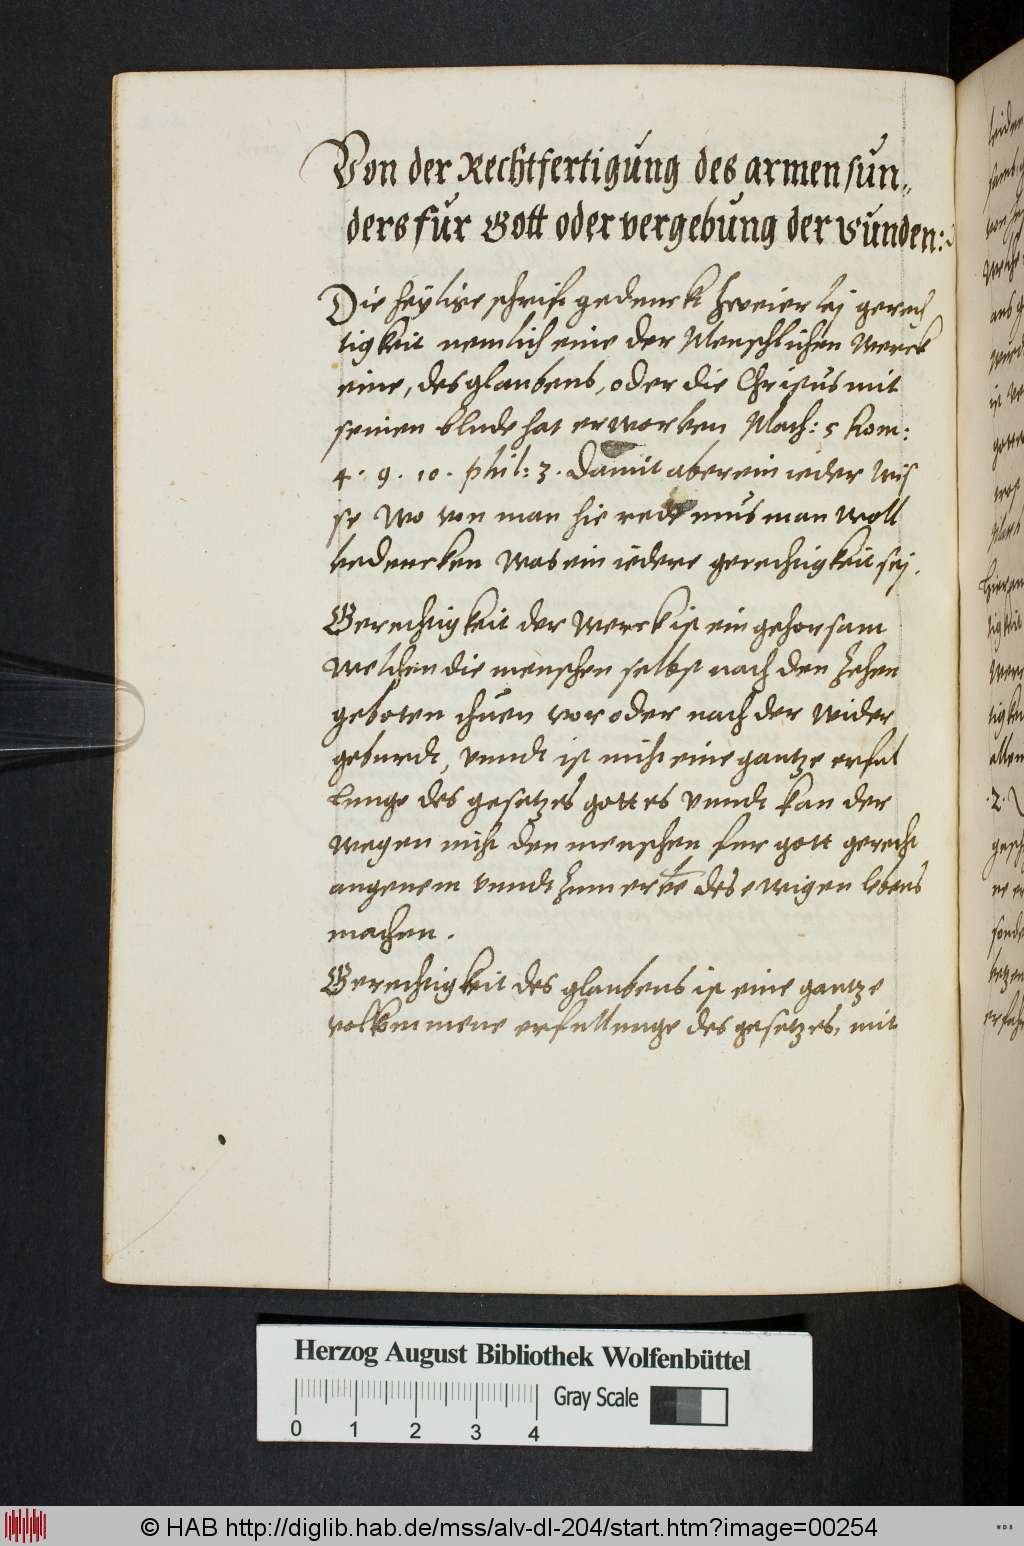 Von der Rechtfertigung des armen sun„
ders fur Gott oder vergebung der Sunden:
Die heylige schrift gedenckt zweierlej gerech
tigkeit nemlich eine der Menschlichen werck
eine, des glaubens, oder die Christus mit
seinen blude hat erworben Math: 5 Rom:
4. 9. 10. phil: 3. Damit aber ein ieder wis
se wo von man hie rede mus man woll
bedencken was ein iedere gerechtigkeit sej.
Gerechtigkeit der werck ist ein gehorsam
welchen die menschen selbst nach den Zehen
geboten thuen vor oder nach der wider
geburdt, vnndt ist nicht eine gantze erful
lunge des gesetzes gottes vnndt kan der
wegen nicht den menschen fur gott gerecht
angenem vnndt zum erbe des ewigen lebens
machen.
Gerechtigkeit des glaubens ist eine gantze
volkommene erfullunge des gesetzes, mit
Herzog August Bibliothek Wolfenbüttel
0 1 2 3 4 Gray Scale
© HAB http://diglib.hab.de/mss/alv-dl-204/start.htm?image=00254